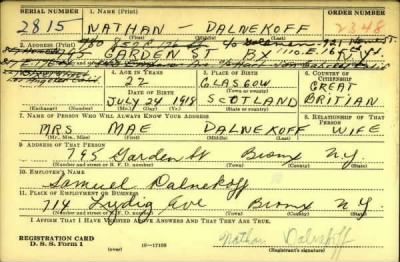 SERIAL NUMBER 1. NAME (Print) ORDER NUMBER
2815 NATHAN — DALNEKOFF 2348
(First) (Middle) (Last)
2. ADDRESS (Print)
765 GARDEN ST BX N.Y.
(Number and street or R. F. D. number) (Town) (County) (State)
3. TELEPHONE 4. AGE IN YEARS 5. PLACE OF BIRTH 6. COUNTRY OF CITIZENSHIP
22 GLASGOW GREAT
DATE OF BIRTH (Town or county)
JULY 24 1918 SCOTLAND BRITIAN
(Exchange) (Number) (Mo.) (Day) (Yr.) (State or country)
7. NAME OF PERSON WHO WILL ALWAYS KNOW YOUR ADDRESS 8. RELATIONSHIP OF THAT PERSON
MRS MAE DALNEKOFF WIFE
(Mr., Mrs., Miss) (First) (Middle) (Last)
9. ADDRESS OF THAT PERSON
765 Garden St Bronx N.Y.
(Number and street or R. F. D. number) (Town) (County) (State)
10. EMPLOYER'S NAME
Samuel Dalnekoff
11. PLACE OF EMPLOYMENT OR BUSINESS
714 Lydig Ave Bronx N.Y.
(Number and street or R. F. D. number) (Town) (County) (State)
I AFFIRM THAT I HAVE VERIFIED ABOVE ANSWERS AND THAT THEY ARE TRUE.
REGISTRATION CARD
D. S. S. Form 1 (over) 16—17105 Nathan Dalnekoff
(Registrant's signature)